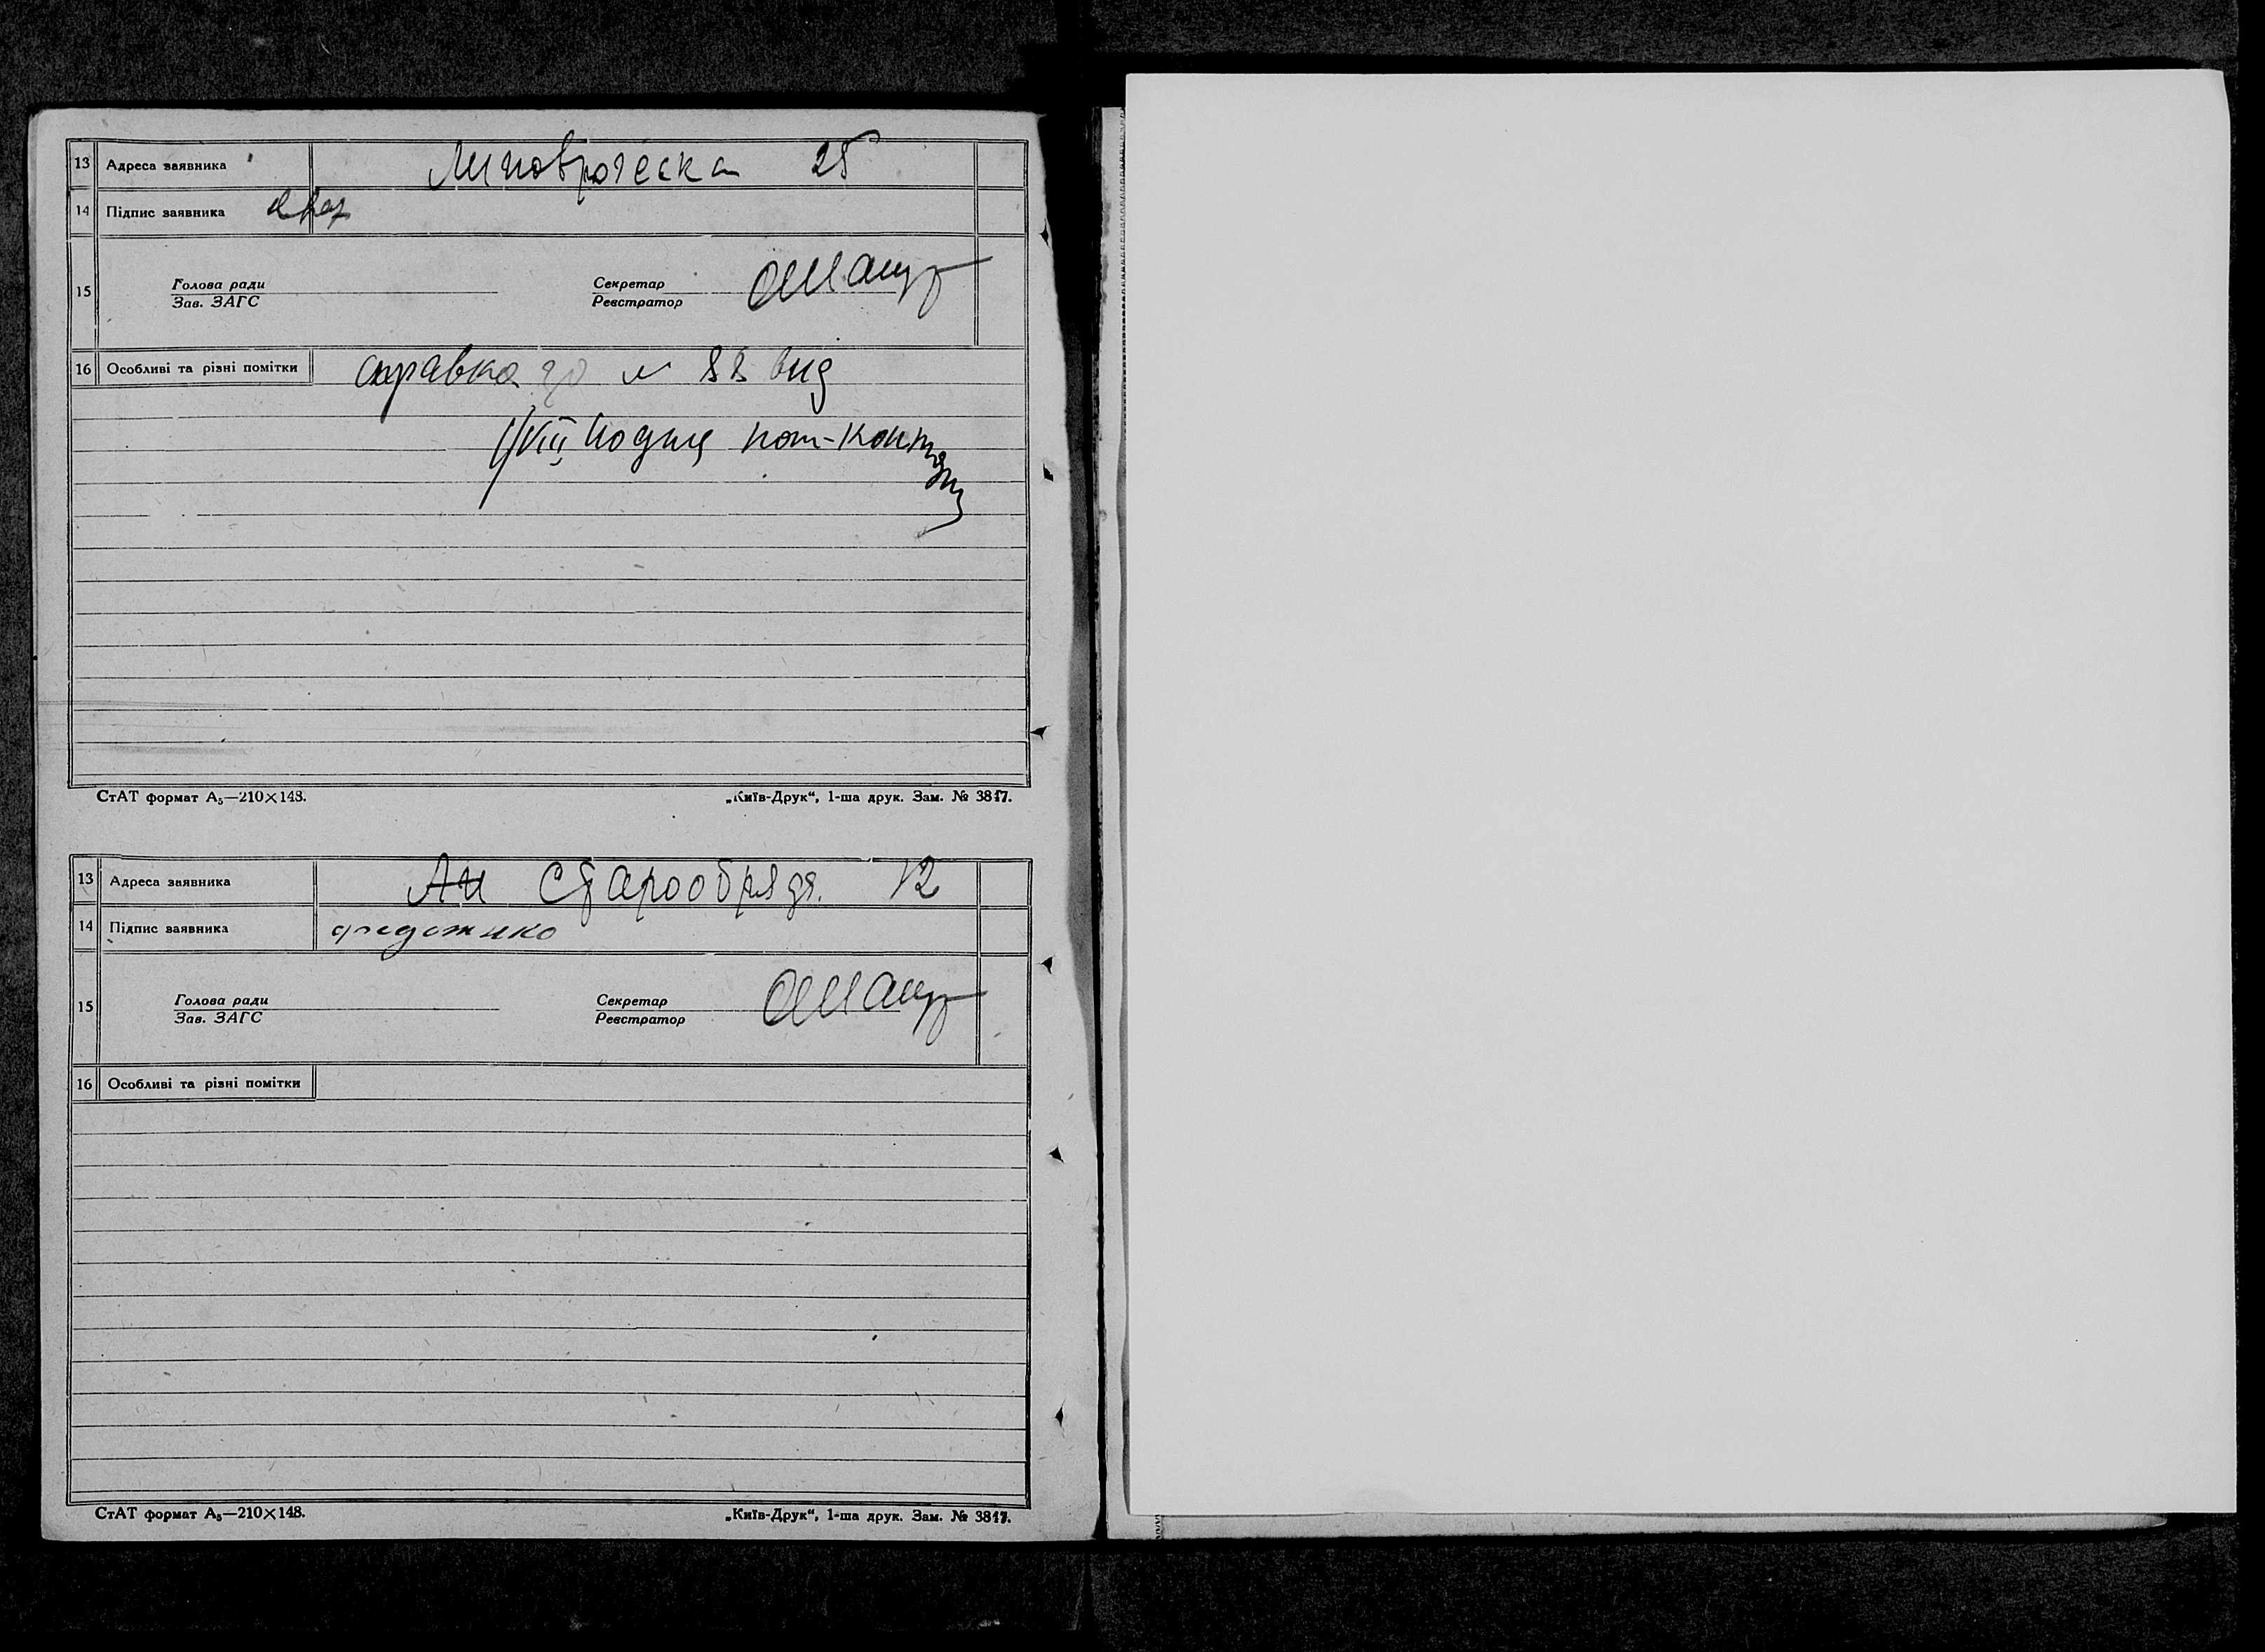 13 Адреса заявника 25
14 Підпис заявника
15 Голова ради Секретар
Зав. ЗАГС Реєстратор
16 Особливі та різні помітки справка № 88 вид
VIII
СтАТ формат А₅—210×148. „Київ-Друк“, 1-ша друк. Зам. № 3817.
13 Адреса заявника Ан Старообряд. 12
14 Підпис заявника
15 Голова ради Секретар
Зав. ЗАГС Реєстратор
16 Особливі та різні помітки
СтАТ формат А₅—210×148. „Київ-Друк“, 1-ша друк. Зам. № 3817.